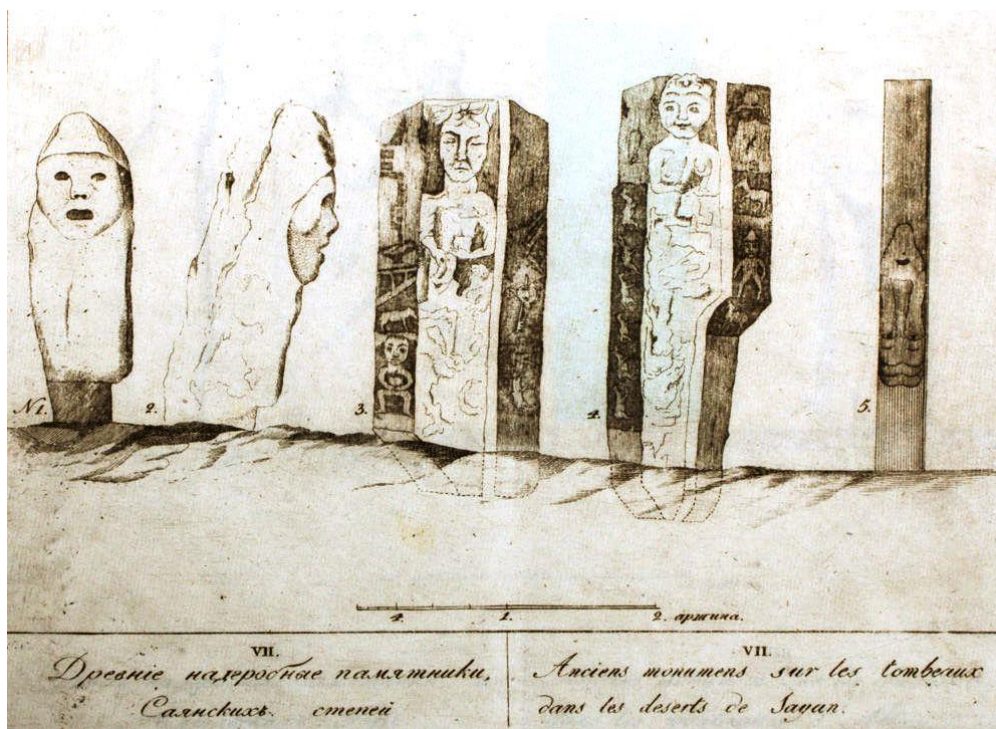 №1.
2.
3.
4.
5.
1.
2. аршина.
VII.
Древніе надгробные памятники,
Саянскихъ степей
VII.
Anciens monumens sur les tombeaux
dans les deserts de Sayan.